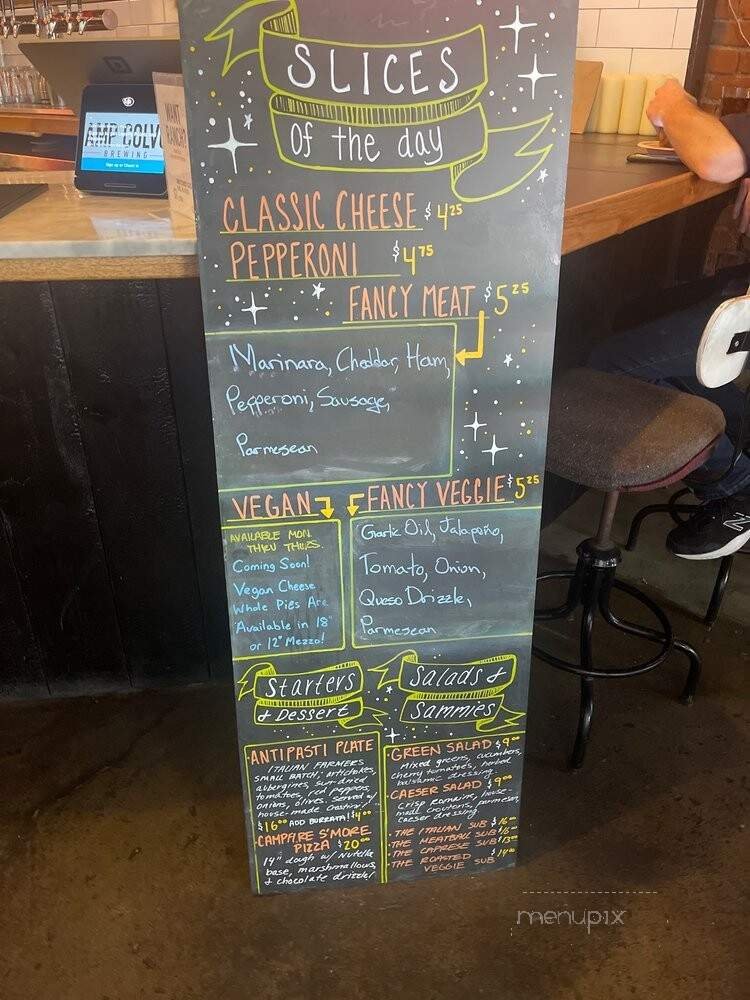 SLICES
Of the day
CLASSIC CHEESE $4.25
PEPPERONI $4.75
FANCY MEAT $5.25
Marinara, Cheddar, Ham,
Pepperoni, Sausage,
Parmesean
VEGAN
AVAILABLE MON
THRU THURS.
Coming Soon!
Vegan Cheese
Whole Pies Are
Available in 18"
or 12" Mezzo!
FANCY VEGGIE $5.25
Garlic Oil, Jalapeño,
Tomato, Onion,
Queso Drizzle,
Parmesean
Starters
& Dessert
·ANTIPASTI PLATE
ITALIAN FARMERS
SMALL BATCH; artichokes,
aubergines, sun-dried
tomatoes, red peppers,
onions, olives. served w/
house-made crostini!
$16.00 ADD BURRATA! $4.00
·CAMPFIRE S'MORE
PIZZA $20.00
14" dough w/ Nutella
base, marshmallows,
& chocolate drizzle!
Salads &
Sammies
·GREEN SALAD $9.00
Mixed greens, cucumbers,
cherry tomatoes, herbed
balsamic dressing.
·CAESER SALAD $9.00
Crisp Romaine, house-
made croutons, parmesan,
caeser dressing
·THE ITALIAN SUB $16.00
·THE MEATBALL SUB $16.00
·THE CAPRESE SUB $13.00
·THE ROASTED
VEGGIE SUB $14.00
BREWING
Sign up or Check in
WANT
RANCH?
menupix